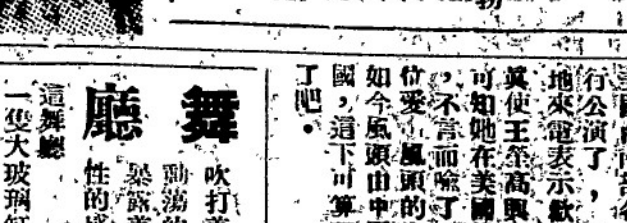 行公演了，
地來電表示歡
真使王笙高興
可知她在美國
，不言而喻了
位愛風頭的
如今風頭由中
國，這下可算
了吧。
舞廳
吹打
動蕩
暴露
性的
這舞廳
一隻大玻璃缸